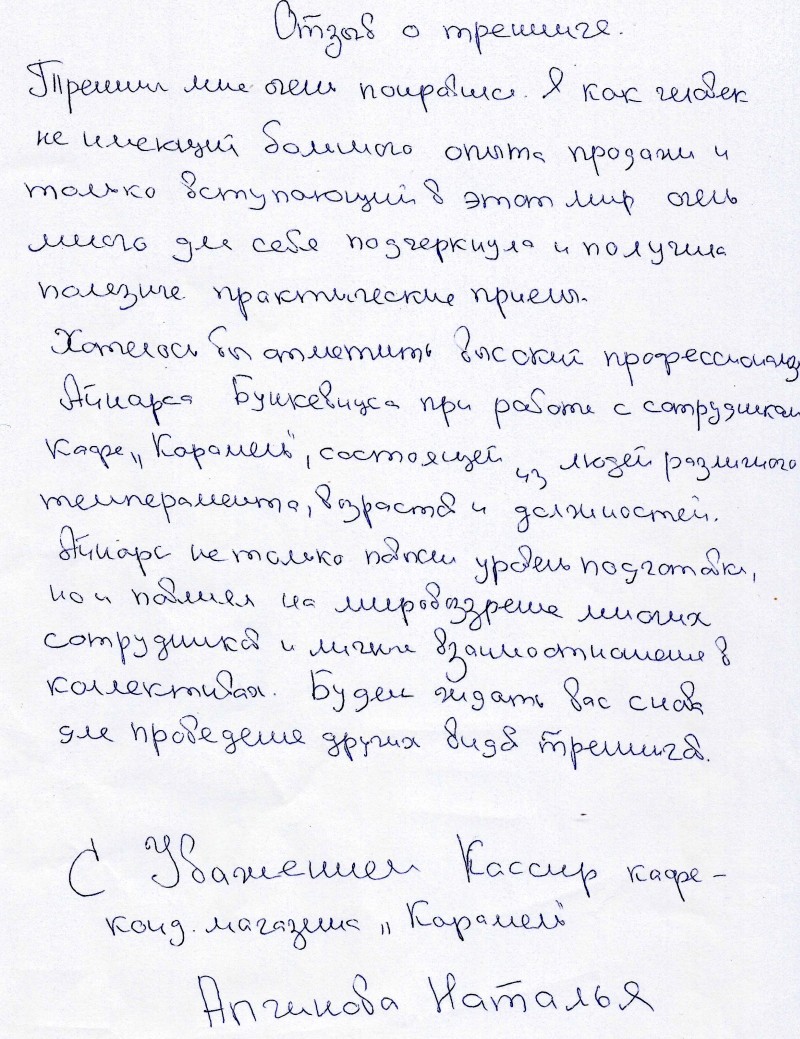 Отзыв о тренинге.
Тренинг мне очень понравился. Я как человек
не имеющий большого опыта продажи и
только вступающий в этот мир очень
много для себя подчеркнула и получила
полезные практические приемы.
Хотелось бы отметить высокий профессионализ
Айнарса Бушкевицса при работе с сотрудникам
кафе „Карамель", состоящей из людей различного
темперамента, возраста и должностей.
Айнарс не только повысил уровень подготовки,
но и повлиял на мировоззрение многих
сотрудников и личные взаимоотношения в
коллективах. Будем ждать вас снова
для проведения других видов тренингов.
С Уважением Кассир кафе-
конд. магазина „Карамель"
Апчинова Наталья